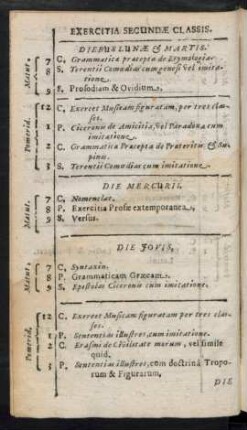 EXERCITIA SECUNDÆ CLASSIS.
DIEBUS LUNÆ & MARTIS.
Matut.
7 C. Grammatica præcepta de Etymologia.
8 S. Terentii Comœdias cum genesi vel imi-
tatione.
9 P. Prosodiam & Ovidium.
Pomerid.
12 C. Exercet Musicam figuratam, per tres clas-
ses.
1 P. Ciceronem de Amicitia, vel Paradoxa cum
imitatione.
2 C. Grammatica Præcepta de Præteritis & Su-
pinis.
3 S. Terentii Comœdias cum imitatione.
DIE MERCURII.
Matut.
7 C. Nomenclat.
8 P. Exercitia Prosæ extemporanea.
9 S. Versus.
DIE JOVIS.
Matut.
7 C. Syntaxin.
8 P. Grammaticam Græcam.
9 S. Epistolas Ciceronis cum imitatione.
Pomerid.
12 C. Exercet Musicam figuratam per tres clas-
ses.
1 P. Sententias illustres, cum imitatione.
2 C. Erasmi de Civilitate morum, vel simile
quid.
3 P. Sententias illustres, cum doctrina Tropo-
rum & Figurarum.
DIE